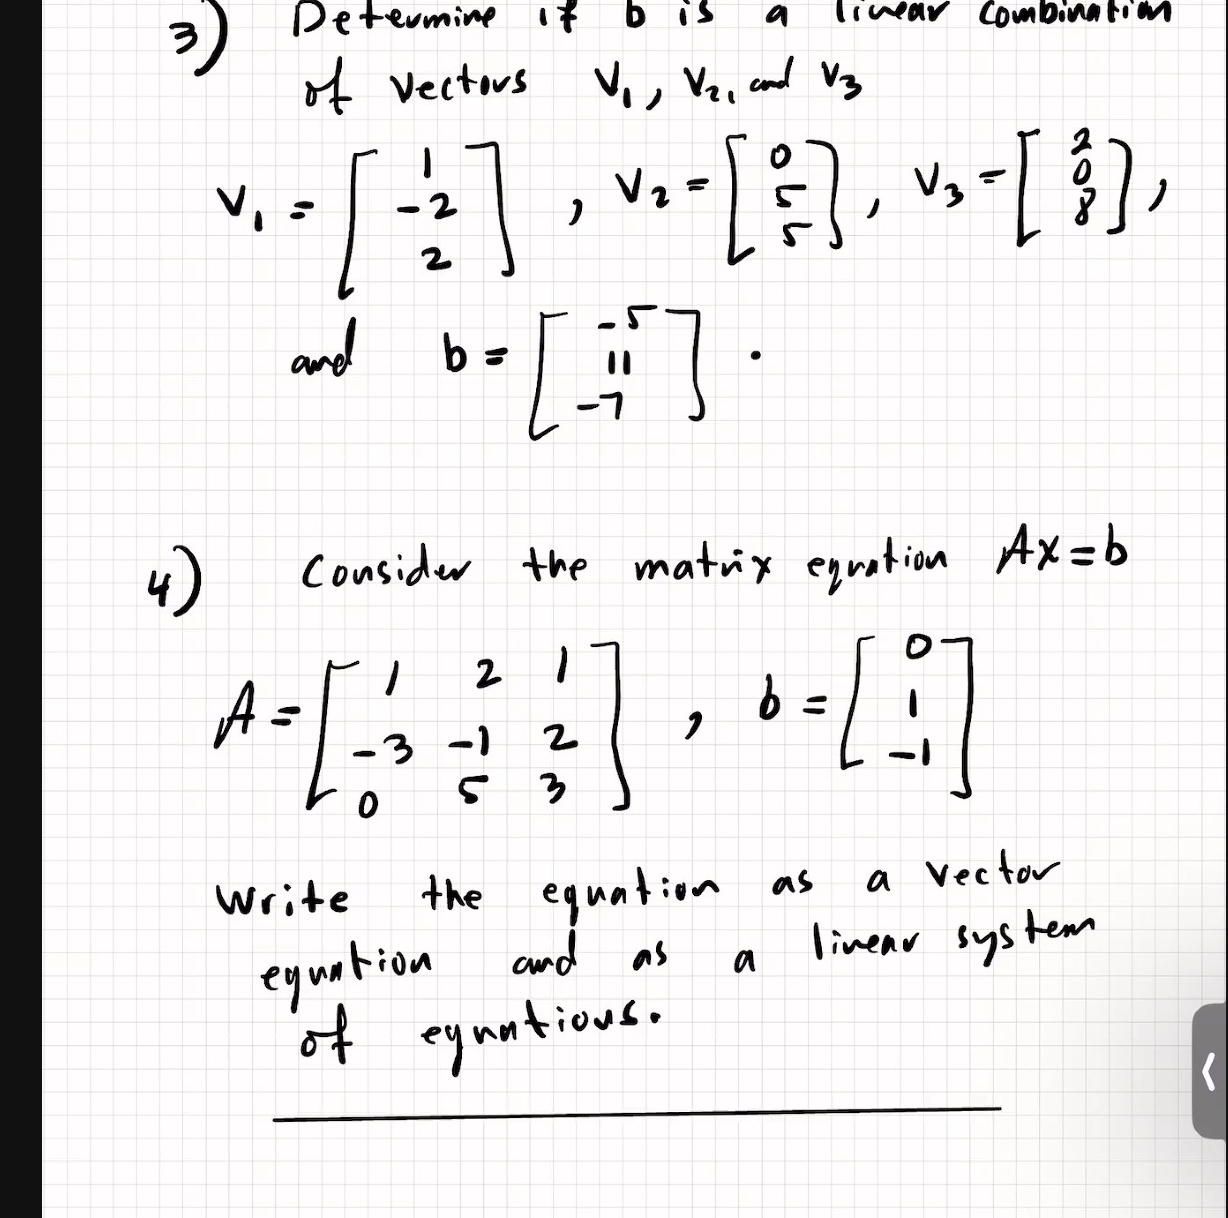 3) Determine if b is a linear combination
of vectors v₁, v₂, and v₃
v₁ = [1 -2 2], v₂ = [0 5 5], v₃ = [2 0 8],
and b = [-5 11 -7].
4) Consider the matrix equation Ax=b
A = [1 2 1
-3 -1 2
0 5 3], b = [0 1 -1]
write the equation as a vector
equation and as a linear system
of equations.